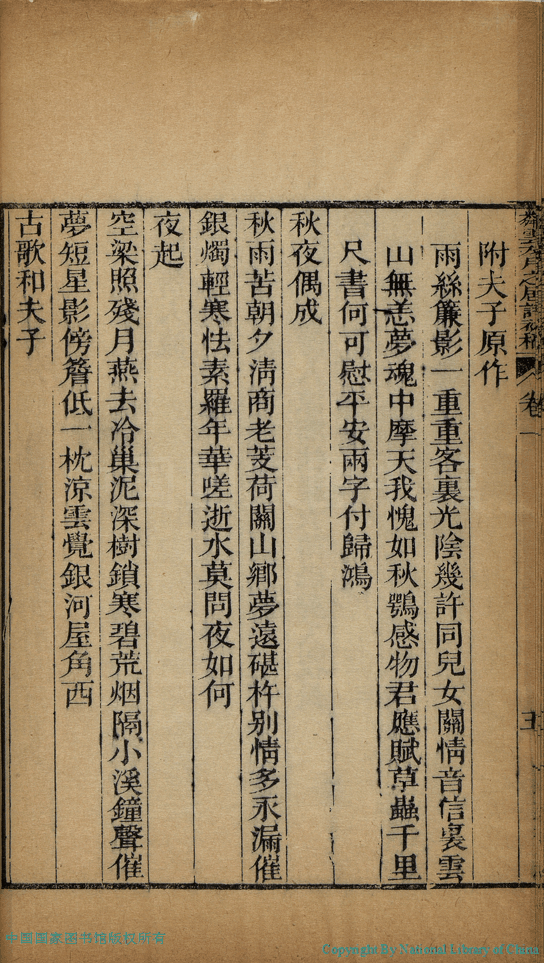 附夫子原作
雨絲簾影一重重客裏光陰幾許同兒女關情音信裏雲
山無恙夢魂中摩天我愧如秋鶚感物君應賦草蟲千里
尺書何可慰平安兩字付歸鴻
秋夜偶成
秋雨苦朝夕淸商老芰荷關山鄉夢遠碪杵别情多永漏催
銀燭輕寒怯素羅年華嗟逝水莫問夜如何
夜起
空梁照殘月燕去冷巢泥深樹鎖寒碧荒烟隔小溪鐘聲催
夢短星影傍簷低一枕涼雲覺銀河屋角西
古歌和夫子
卷一
五
中国国家图书馆版权所有
Copyright By National Library of China